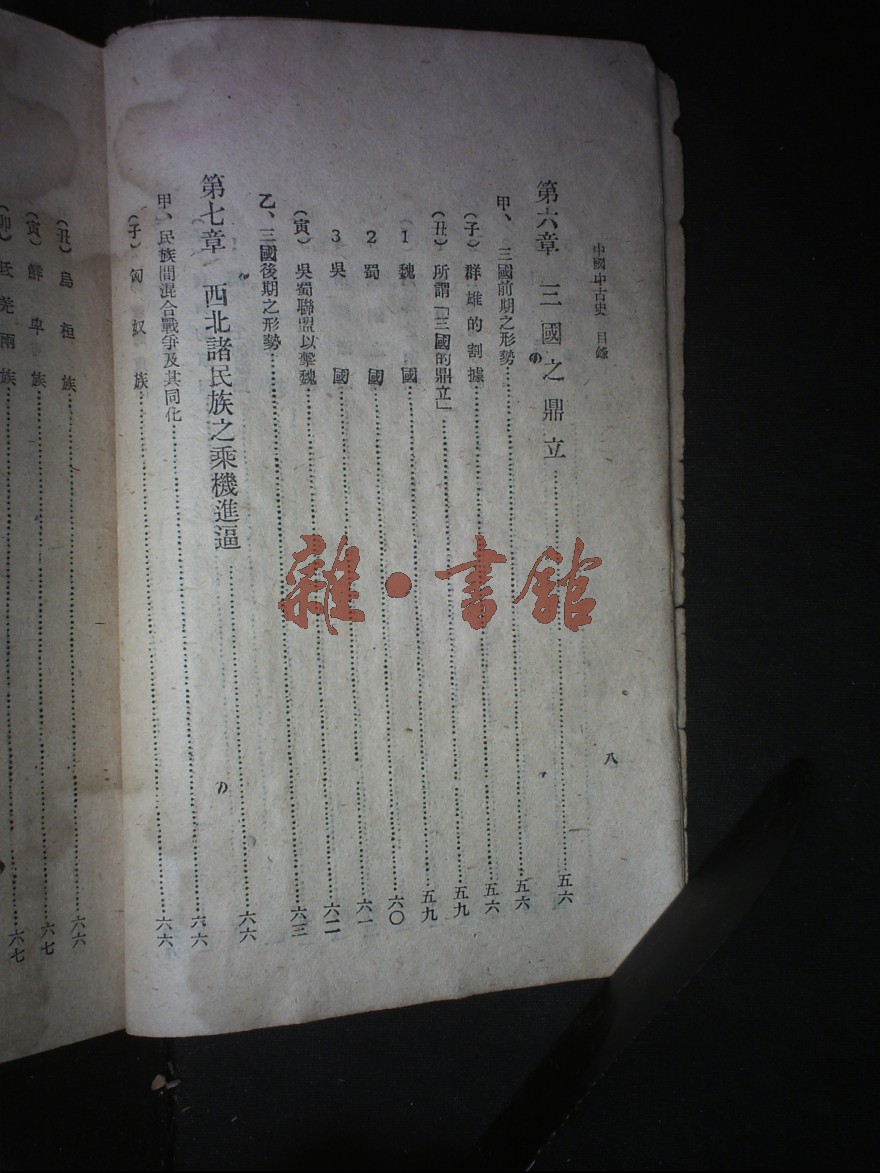 中國中古史 目錄
八
第六章 三國之鼎立……五六
甲、三國前期之形勢……五六
(子)群雄的割據……五六
(丑)所謂「三國的鼎立」……五九
1 魏國……五九
2 蜀國……六〇
3 吳國……六一
(寅)吳蜀聯盟以擊魏……六二
乙、三國後期之形勢……六三
第七章 西北諸民族之乘機進逼……六六
甲、民族間混合戰爭及其同化……六六
(子)匈奴族……六六
(丑)烏桓族……六六
(寅)鮮卑族……六七
(卯)氐羌兩族……六七
雜·書館